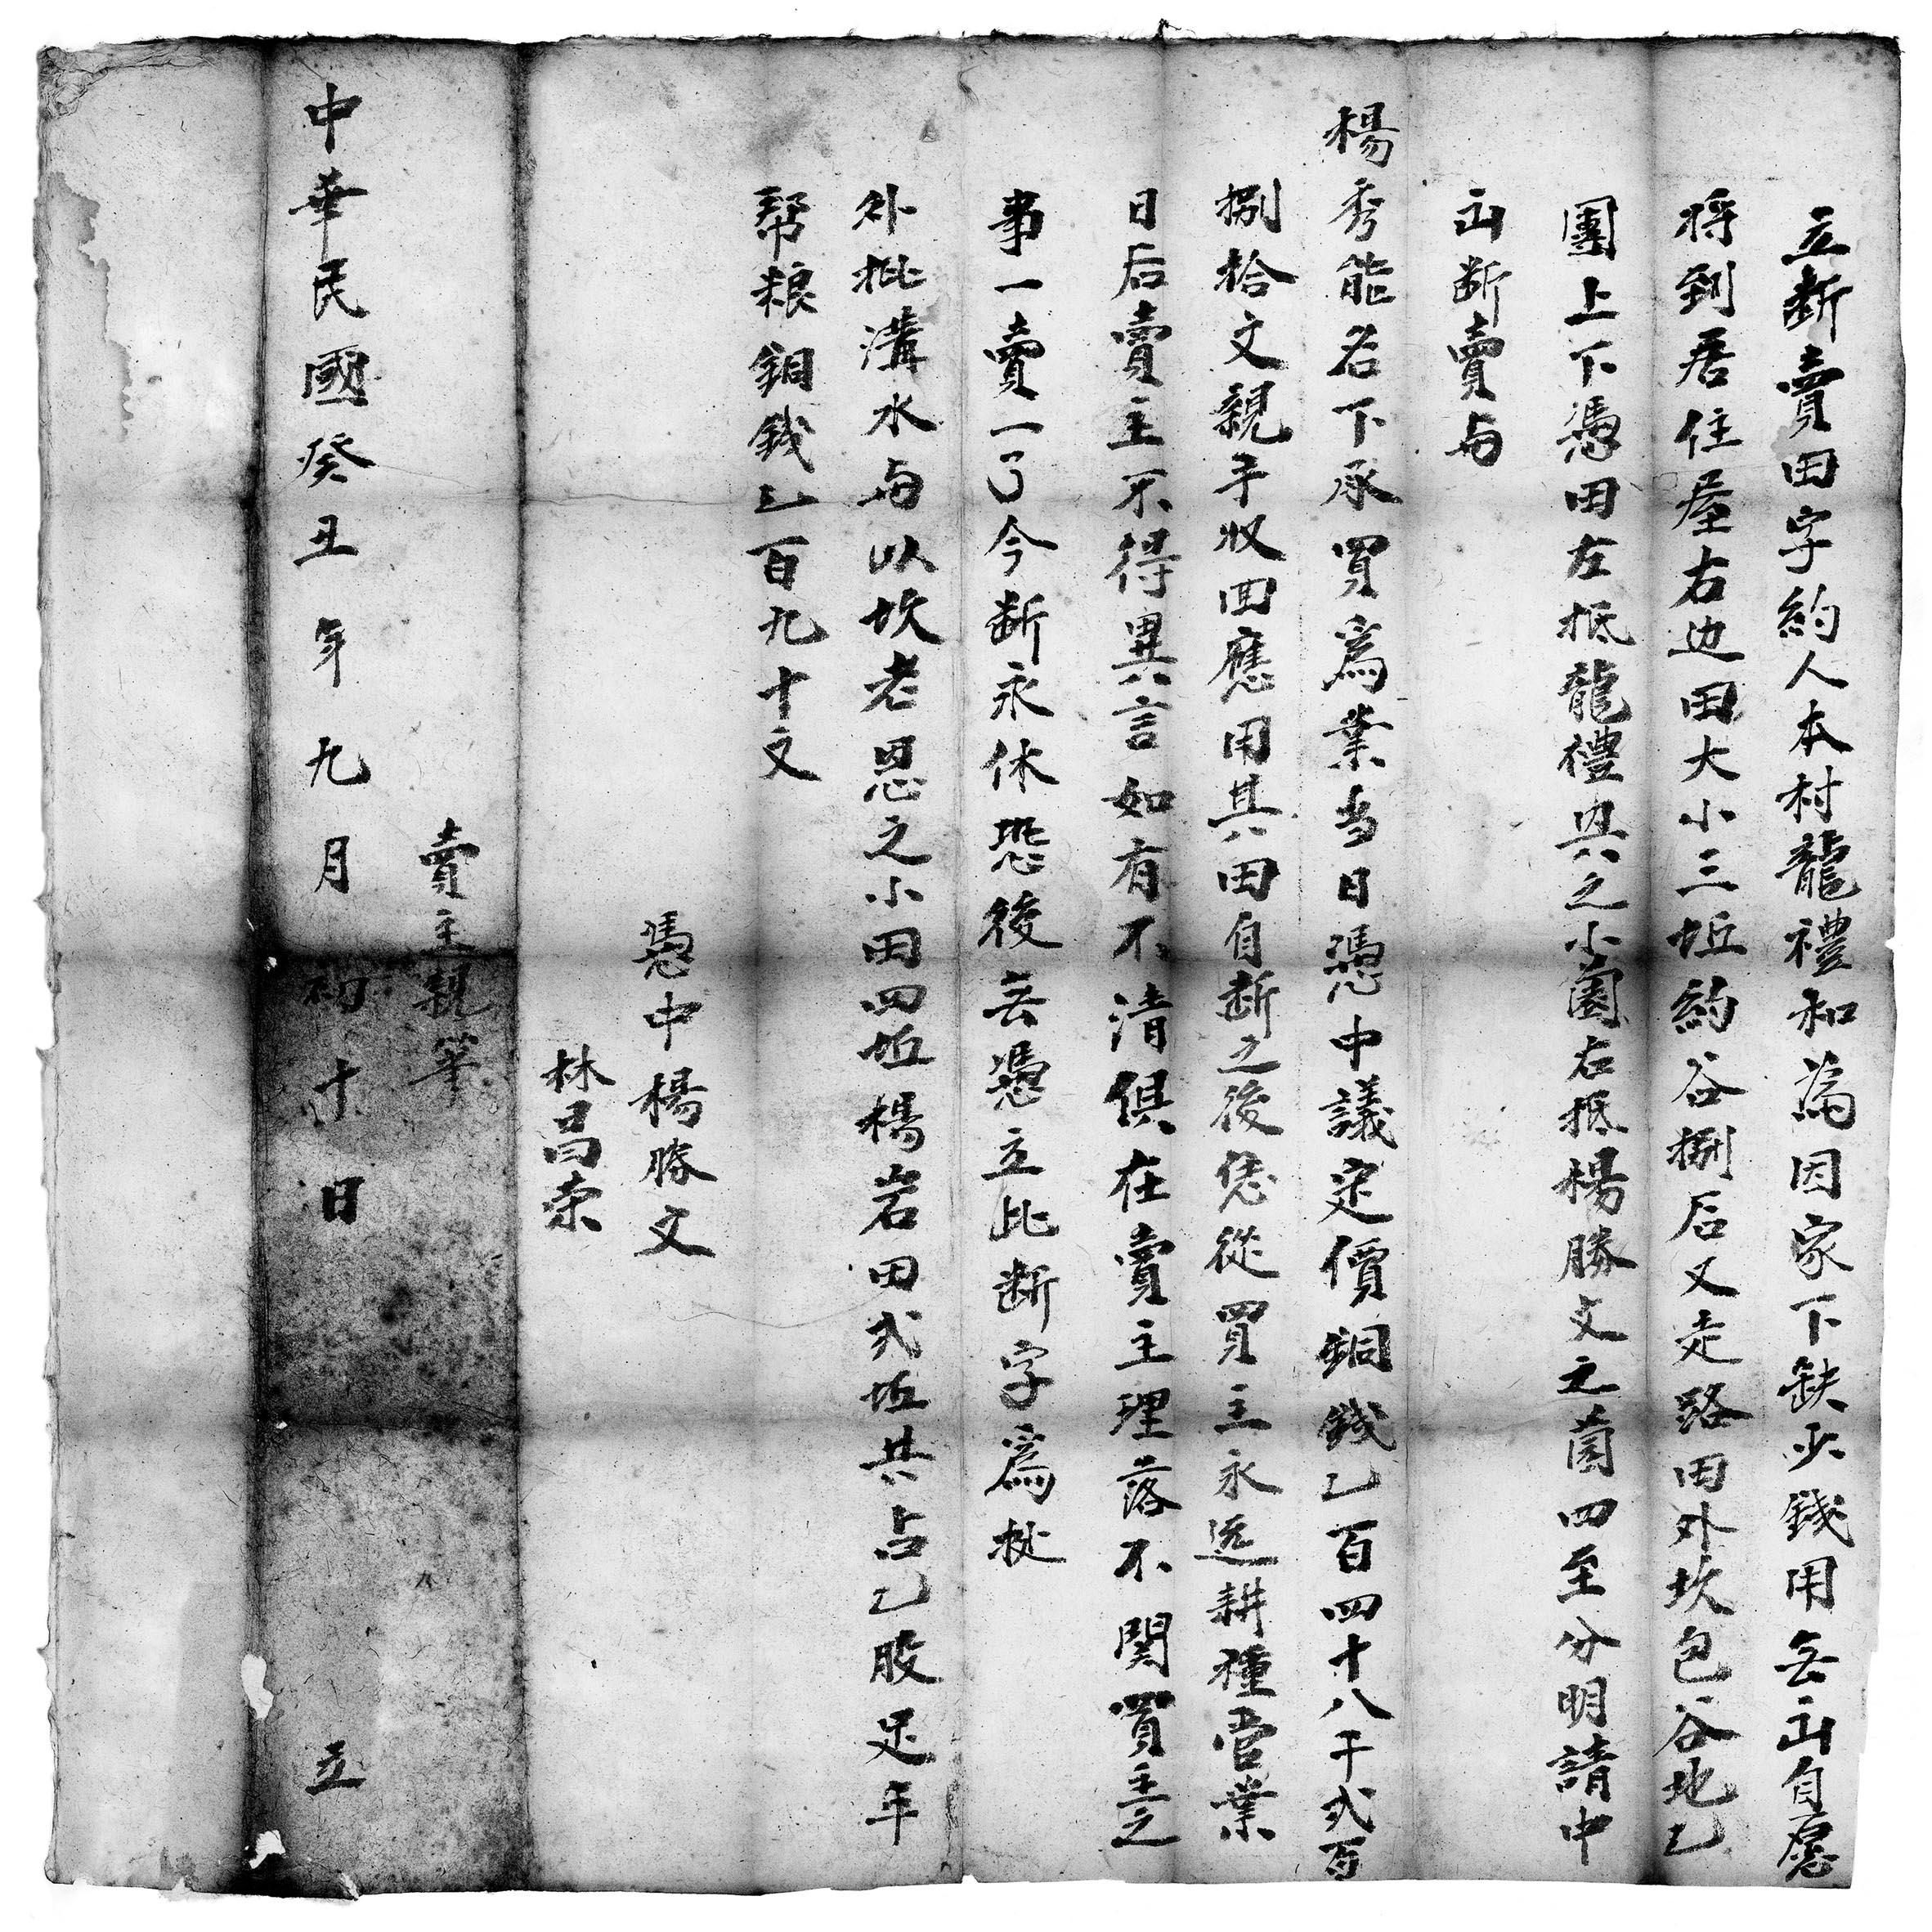 立断賣田字約人本村龍禮和為因家下缺少錢用無出自愿
将到居住屋右边田大小三坵約谷捌后又走路田外坎包谷地乙
團上下憑田左抵龍禮興之小園右抵楊勝文之園四至分明請中
出断賣与
楊秀能名下承買為業当日憑中議定價銅錢乙百四十八千弍百
捌拾文親手收回應用其田自断之後恁從買主永远耕種管業
日后賣主不得異言如有不清俱在賣主理落不関買主之
事一賣一了今断永休恐後無憑立此断字為㨿
外批溝水与以坎老恩之小田四坵楊岩田弍坵共占乙股足年
帮粮銅錢乙百九十文
憑中楊勝文
林昌荣
賣主親筆
中華民國癸丑年九月初十日 立